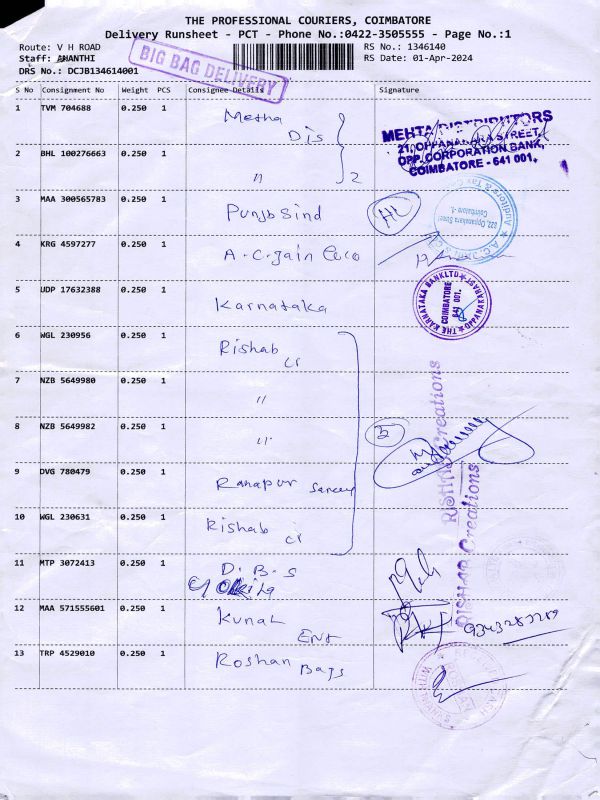 THE PROFESSIONAL COURIERS, COIMBATORE
Delivery Runsheet - PCT - Phone No.:0422-3505555 - Page No.:1
Route: V H ROAD
RS No.: 1346140
Staff: ANANTHI
RS Date: 01-Apr-2024
DRS No.: DCJB134614001
BIG BAG DELIVERY
S No Consignment No Weight PCS Consignee Details Signature
1 TVM 704688 0.250 1 Metha Dis
MEHTA DISTRIBUTORS
21, OPPANAKARA STREET,
OPP. CORPORATION BANK,
COIMBATORE - 641 001.
2 BHL 100276663 0.250 1 " 2
3 MAA 300565783 0.250 1 Punjb Sind
222, Oppanakara Street
Coimbatore -1.
4 KRG 4597277 0.250 1 A.C. Jain &co
5 UDP 17632388 0.250 1 Karnataka
THE KARNATAKA BANK LTD
COIMBATORE
641 001.
6 WGL 230956 0.250 1 Rishab cr
7 NZB 5649980 0.250 1 "
8 NZB 5649982 0.250 1 " 5
RISHAB Creations
RISHAB Creations
9 DVG 780479 0.250 1 Ranapur
10 WGL 230631 0.250 1 Rishab cr
11 MTP 3072413 0.250 1 D.B.S
12 MAA 571555601 0.250 1 Kunal Ent
13 TRP 4529010 0.250 1 Roshan Bags